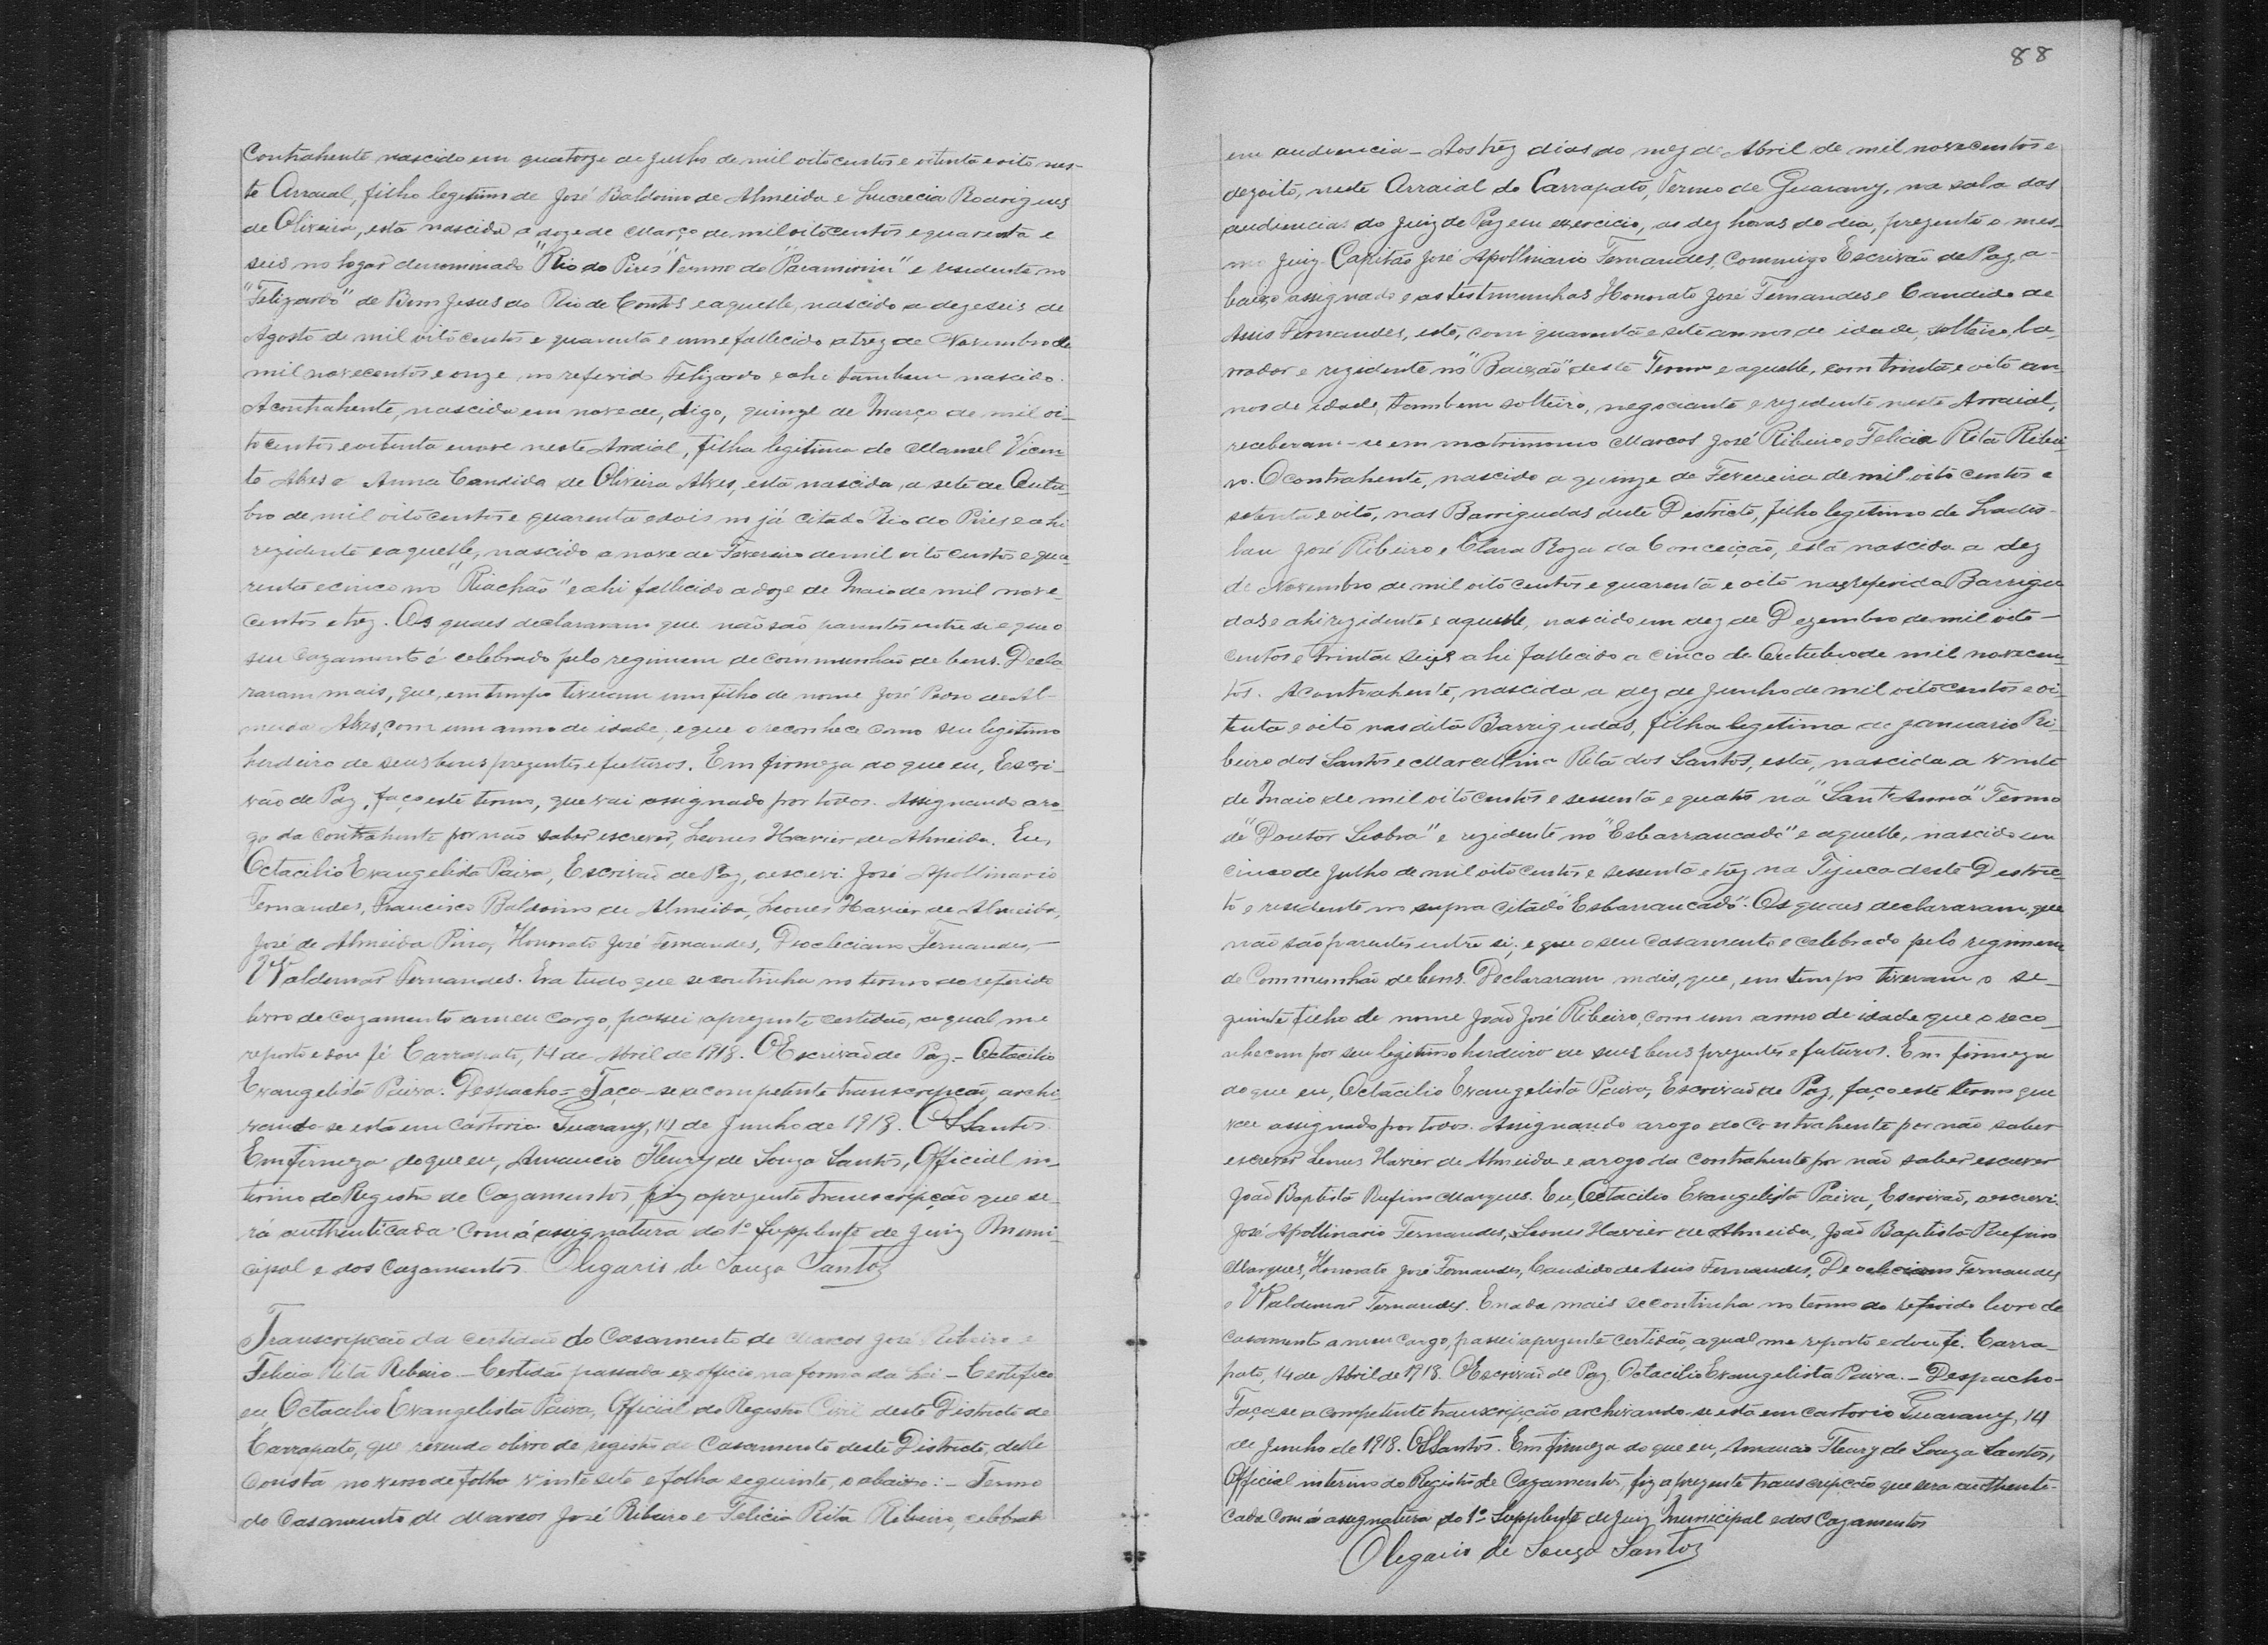 Contrahente nascido em quatorze de Julho de mil oitocentos e oitenta e oito nes-
te Arraial, filho legitimo de José Baldoino de Almeida e Lucrecia Rodrigues
de Oliveira, esta nascida a doze de Março de mil oitocentos e quarenta e
seis no logar denominado "Rio do Pires" Termo do "Paramirim" e residente no
"Felizardo" de Bom Jesus do Rio de Contas e aquelle, nascido a dezeseis de
Agosto de mil oito centos e quarenta e um e fallecido a trez de Novembro de
mil novecentos e onze no referido Felizardo e ahi tambem nascido.
A contrahente, nascida em nove de, digo, quinze de Março de mil oi-
tocentos e oitenta e nove neste Arraial, filha legitima de Manoel Vicen-
te Alves e Anna Candida de Oliveira Alves, esta nascida, a sete de Outu-
bro de mil oito centos e quarenta e dois no já citado Rio do Pires e ahi
rezidente e aquelle, nascido a nove de Fevereiro de mil oito centos e qua-
renta e cinco no "Riachão" e ahi fallecido a doze de Maio de mil nove-
centos e trez. Os quaes declararam que não são parentes entre si e que o
seu cazamento é celebrado pelo regimem de communhão de bens. Decla
raram mais, que, em tempo tiveram um filho de nome José Pedro de Al-
meida Alves, com um anno de idade, e que o reconhece como seu legitimo
herdeiro de seus bens prezentes e futuros. Em firmeza do que eu, Escri-
vão de Paz, faço este termo, que vai assignado por todos. Assignando a ro-
go da contrahente por não saber escrever, Leones Xavier de Almeida. Eu,
Octacilio Evangelista Paiva, Escrivão de Paz, o escrevi. José Apollinario
Fernandes, Francisco Baldoino de Almeida, Leones Xavier de Almeida,
José de Almeida Pires, Honorato José Fernandes, Deocleciano Fernandes,-
Waldemar Fernandes. Era tudo que se continha no termo do referido
livro de cazamento a meu cargo, passei a prezente certidão, a qual me
reporto e dou fé Carrapato, 14 de Abril de 1918. O Escrivão de Paz.- Octacilio
Evangelista Paiva. Despacho= Faça-se a competente transcripção, archi-
vando-se esta em cartorio Guarany, 14 de Junho de 1918. OSSantos.
Em firmeza do que eu, Amancio Fleury de Souza Santos, Official in-
terino do Registro de Cazamentos, fiz a prezente transcripção que se-
rá authenticada com a assignatura do 1º Supplente de Juiz Muni-
cipal e dos Cazamentos. Olegario de Souza Santos
Transcripção da certidão do Casamento de Marcos José Ribeiro e
Felicia Rita Ribeiro.- Certidão passada ex officio na forma da Lei - Certifico
eu Octacilio Evangelista Paiva, Official do Registro Civil deste Districto de
Carrapato, que revendo o livro de registro de Casamento deste Districto, delle
consta no verso de folha vinte sete e folha seguinte, o abaixo:- Termo
do Casamento de Marcos José Ribeiro e Felicia Rita Ribeiro, celebrado
88
em audiencia - Aos trez dias do mez de Abril de mil novecentos e
dezoito, neste Arraial do Carrapato, Termo de Guarany, na sala das
audiencias do Juiz de Paz em exercicio, as dez horas do dia, prezente o mes-
mo Juiz- Capitão José Apollinario Fernandes, Commigo Escrivão de Paz, a-
baixo assignado e as testemunhas Honorato José Fernandes e Candido de
Assis Fernandes, este, com quarenta e sete annos de idade, solteiro, la-
vrador e rezidente no "Baixão" deste Termo e aquelle, com trinta e oito an-
nos de idade, tambem solteiro, negociante e rezidente neste Arraial,
receberam-se em matrimonio Marcos José Ribeiro e Felicia Rita Ribei-
ro. O contrahente, nascido a quinze de Fevereiro de mil oito centos e
setenta e oito, nas Barrigudas deste Districto, filho legitimo de Ladis-
lau José Ribeiro e Clara Roza da Conceição, esta nascida a dez
de Novembro de mil oito centos e quarenta e oito nas referida Barrigu
das e ahi rezidente e aquelle, nascido em dez de Dezembro de mil oito-
centos e trinta e seis e ahi fallecido a cinco de Outubro de mil novecen-
tos. A contrahente, nascida a dez de Junho de mil oito centos e oi-
tenta e oito nas dita Barrigudas, filha legitima de Januario Ri-
beiro dos Santos e Marcellina Rita dos Santos, esta, nascida a vinte
de Maio de mil oito centos e sessenta e quatro na "Sant'Anna" Termo
de "Doutor Seabra" e rezidente no "Esbarrancado" e aquelle, nascido em
cinco de Julho de mil oito centos e sessenta e trez na Tijuca deste Distric-
to e residente no supra citado "Esbarrancado". Os quaes declararam, que
não são parentes entre si; e que o seu casamento é celebrado pelo regimem
de Communhão de bens. Declararam mais, que, em tempo tiveram o se-
guinte filho de nome João José Ribeiro, com um anno de idade que o reco-
nhecem por seu legitimo herdeiro de seus bens prezentes e futuros. Em firmeza
do que eu, Octacilio Evangelista Paiva, Escrivão de Paz, faço este termo que
vae assignado por todos. Assignando a rogo do contrahente por não saber
escrever Leones Xavier de Almeida e a rogo da contrahente por não saber escrever
João Baptista Rufino Marques. Eu, Octacilio Evangelista Paiva, Escrivão, o escrevi.
José Apollinario Fernandes, Leones Xavier de Almeida, João Baptista Rufino
Marques, Honorato José Fernandes, Candido de Assis Fernandes, Deocleciano Fernandes
e Waldemar Fernandes. E nada mais se continha no termo do referido livro de
casamento a meu cargo, passei a prezente certidão, a qual me reporto e dou fé. Carra-
pato, 14 de Abril de 1918. O Escrivão de Paz. Octacilio Evangelista Paiva.- Despacho-
Faça-se a competente transcripção archivando-se esta em cartorio Guarany, 14
de Junho de 1918. OSSantos. Em firmeza do que eu, Amancio Fleury de Souza Santos,
Official interino do Registro de Cazamentos, fiz a prezente transcripção que sera authenti-
cada com a assignatura do 1º Supplente de Juiz Municipal e dos Cazamentos
Olegario de Souza Santos